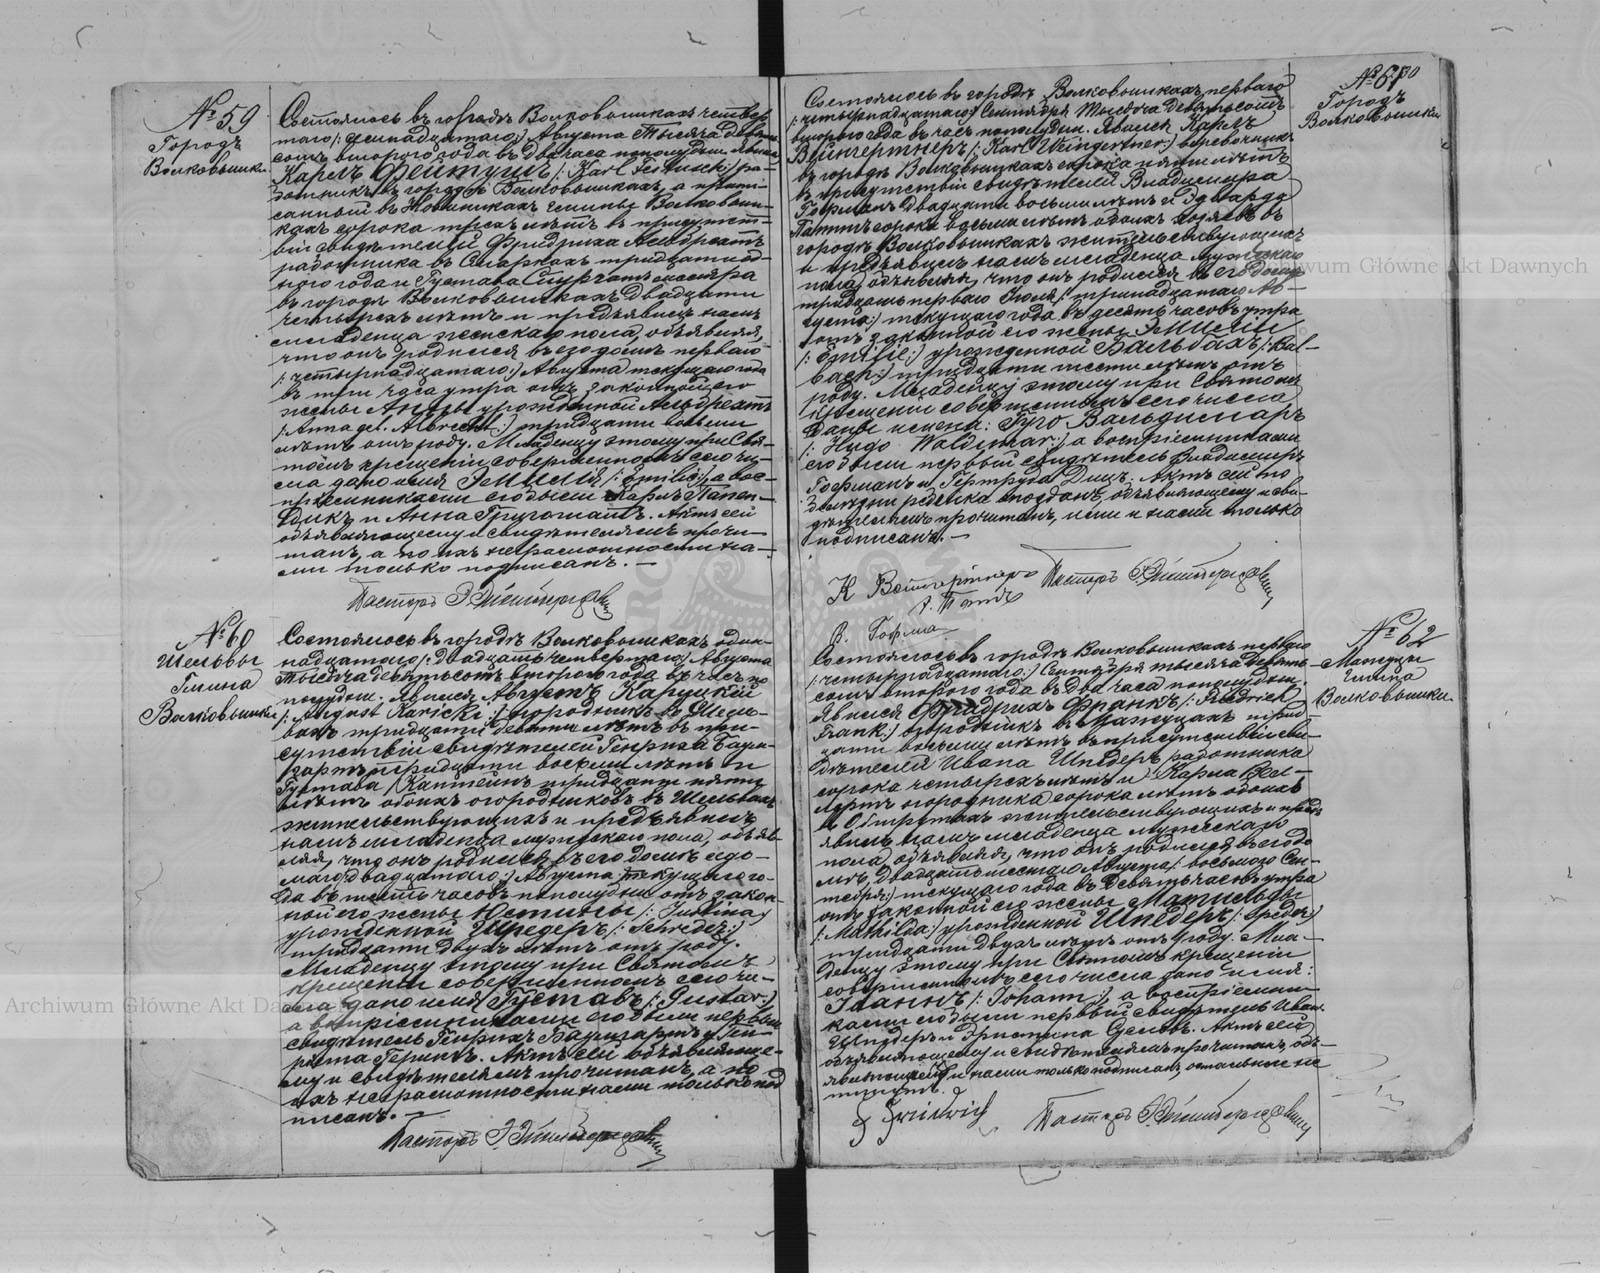 № 59
Городъ
Волковышки.
Состоялось въ городѣ Волковышкахъ четвер-
таго /: семнадцатаго :/ Августа тысяча девять-
сотъ второго года въ два часа пополудни. Явился
Карлъ Фейтушъ /: Karl :/ ра-
ботникъ въ городѣ Волковышкахъ, а припи-
санный въ Новиникахъ гмины Волковыш-
кахъ сорока трехъ лѣтъ въ присутст-
віи свидѣтелей Фридриха Альбрехтъ
работника въ тридцати од-
ного года и Густава мастера
въ городѣ Волковышкахъ двадцати
четырехъ лѣтъ и предъявилъ намъ
младенца женскаго пола, объявляя,
что онъ родился въ его домѣ перваго
/: четырнадцатаго :/ Августа текущаго года
въ три часа утра отъ законной его
жены Анны урожденной Альбрехтъ
/: Anna geb. Albrecht :/ тридцати восьми
лѣтъ отъ роду. Младенцу этому при Свя-
томъ крещеніи совершенномъ сего чи-
сла дано имя Эмилія /: Emilie :/, а вос-
пріемниками его были Карлъ Патен-
и Анна. Актъ сей
объявляющему и свидѣтелямъ прочи-
танъ, а по ихъ неграмотности на-
ми только подписанъ. —
Пасторъ
№ 60
Шельвы
Гмина
Волковышки
Состоялось въ городѣ Волковышкахъ один-
надцатаго /: двадцать четвертаго :/ Августа
тысяча девятьсотъ второго года въ часъ по
полудни. Явился Августъ Карицкій
/: August Karicki :/ огородникъ въ Шель-
вахъ тридцати девяти лѣтъ въ при-
сутствіи свидѣтелей Генриха Баум-
гартъ тридцати восьми лѣтъ и
Густава тридцати пяти
лѣтъ обоихъ огородниковъ въ Шельвахъ
жительствующихъ и предъявилъ
намъ младенца мужескаго пола, объяв-
ляя, что онъ родился въ его домѣ седь-
маго /: двадцатаго :/ Августа текущаго го-
да въ шесть часовъ пополудни отъ закон-
ной его жены Юстины /: Justina :/
урожденной Шредеръ /: Schreder :/
тридцати двухъ лѣтъ отъ роду.
Младенцу этому при Святомъ
крещеніи совершенномъ сего чи-
сла дано имя Густавъ /: Gustav :/,
а воспріемниками его были первый
свидѣтель Генрихъ Баумгартъ и Ген-
ріета. Актъ сей объявляюще-
му и свидѣтелямъ прочитанъ, а по
ихъ неграмотности нами только под
писанъ. —
Пасторъ
№ 61
Городъ
Волковышки
Состоялось въ городѣ Волковышкахъ перваго
/: четырнадцатаго :/ Сентября тысяча девятьсотъ
второго года въ часъ пополудни. Явился Карлъ
Вейнгертнеръ /: Karl Weingertner :/ веревочникъ
въ городѣ Волковышкахъ сорока пяти лѣтъ
въ присутствіи свидѣтелей Владимира
Гофманъ двадцати восьми лѣтъ и Эдварда
сорока восьми лѣтъ обоихъ въ
городѣ Волковышкахъ жительствующихъ
и предъявилъ намъ младенца мужескаго
пола, объявляя, что онъ родился въ его домѣ
тридцать перваго Іюля /: тринадцатаго Ав-
густа :/ текущаго года въ десять часовъ утра
отъ законной его жены Эмиліи
/: Emilie :/ урожденной Бальбахъ /: Bal-
bach :/ тридцати шести лѣтъ отъ
роду. Младенцу этому при Святомъ
крещеніи совершенномъ сего числа
даны имена: Гуго Вальдемаръ
/: Hugo Waldemar :/, а воспріемниками
его были первый свидѣтель Владимиръ
Гофманъ и Гертруда. Актъ сей по
ребенка позданъ, объявляющему и сви-
дѣтелямъ прочитанъ, ими и нами только
подписанъ. —
К Вейнгертнеръ
Пасторъ
В. Гофма
№ 62
гмина
Волковышки
Состоялось въ городѣ Волковышкахъ перваго
/: четырнадцатаго :/ Сентября тысяча девять-
сотъ второго года въ два часа пополудни.
Явился Фридрихъ Франкъ /: Friedrich
Frank :/ огородникъ въ трид
цати восьми лѣтъ въ присутствіи сви-
дѣтелей Ивана Шпедеръ работника
сорока четырехъ лѣтъ и Карла
огородника сорока лѣтъ обоихъ
въ жительствующихъ и предъ
явилъ намъ младенца мужескаго
пола, объявляя, что онъ родился въ его до
мѣ, двадцать шестаго Августа /: восьмого Сен-
тября :/ текущаго года въ девять часовъ утра
отъ законной его жены Матильды
/: Mathilda :/ урожденной Шпедеръ /: Speder :/
тридцати двухъ лѣтъ отъ роду. Мла-
денцу этому при Святомъ крещеніи
совершенномъ сего числа дано имя:
Іоаннъ /: Johann :/, а воспріемни-
ками его были первый свидѣтель Иванъ
Шпедеръ и. Актъ сей
объявляющему и свидѣтелямъ прочитанъ, объ-
являющимъ и нами только подписанъ, остальные не
Пасторъ